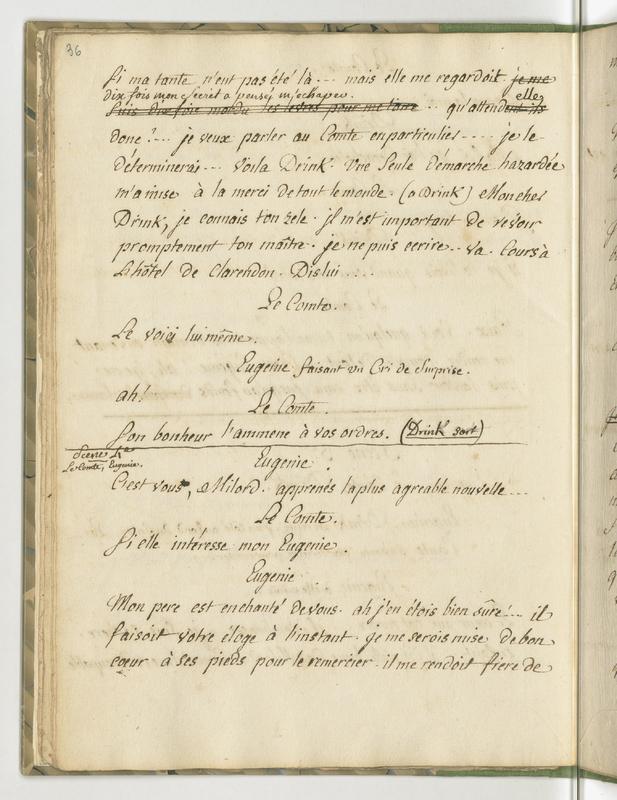 36
Si ma tante n'eut pas été là --- mais elle me regardoit. je me
dix fois mon secret a pensé m'echaper.
suis dix fois mordu les levres pour me taire .. qu'attendent ils elle
donc?... je veux parler au Comte en particulier ---- je le
déterminerai --- Voila Drink. Une seule démarche hazardée
m'a mise à la merci de tout le monde. (a Drink) Mon cher
Drink, je connais ton zele. il m'est important de revoir
promptement ton maître. je ne puis ecrire.. Va. Cours à
L'hôtel de Clarendon. Dis lui ....
Le Comte.
Le voici lui même.
Eugenie faisant un Cri de surprise.
ah!
Le Comte.
Son bonheur l'ammene à vos ordres. (Drink sort)
Scene
Le Comte, Eugenie.
Eugenie.
C'est vous, Milord. apprenés la plus agreable nouvelle ---
Le Comte.
Si elle intéresse mon Eugenie.
Eugenie
Mon pere est enchanté de vous. ah j'en étois bien sûre!... il
faisoit votre éloge à l'instant. je me serois mise de bon
coeur à ses pieds pour le remercier. il me rendoit fiere de